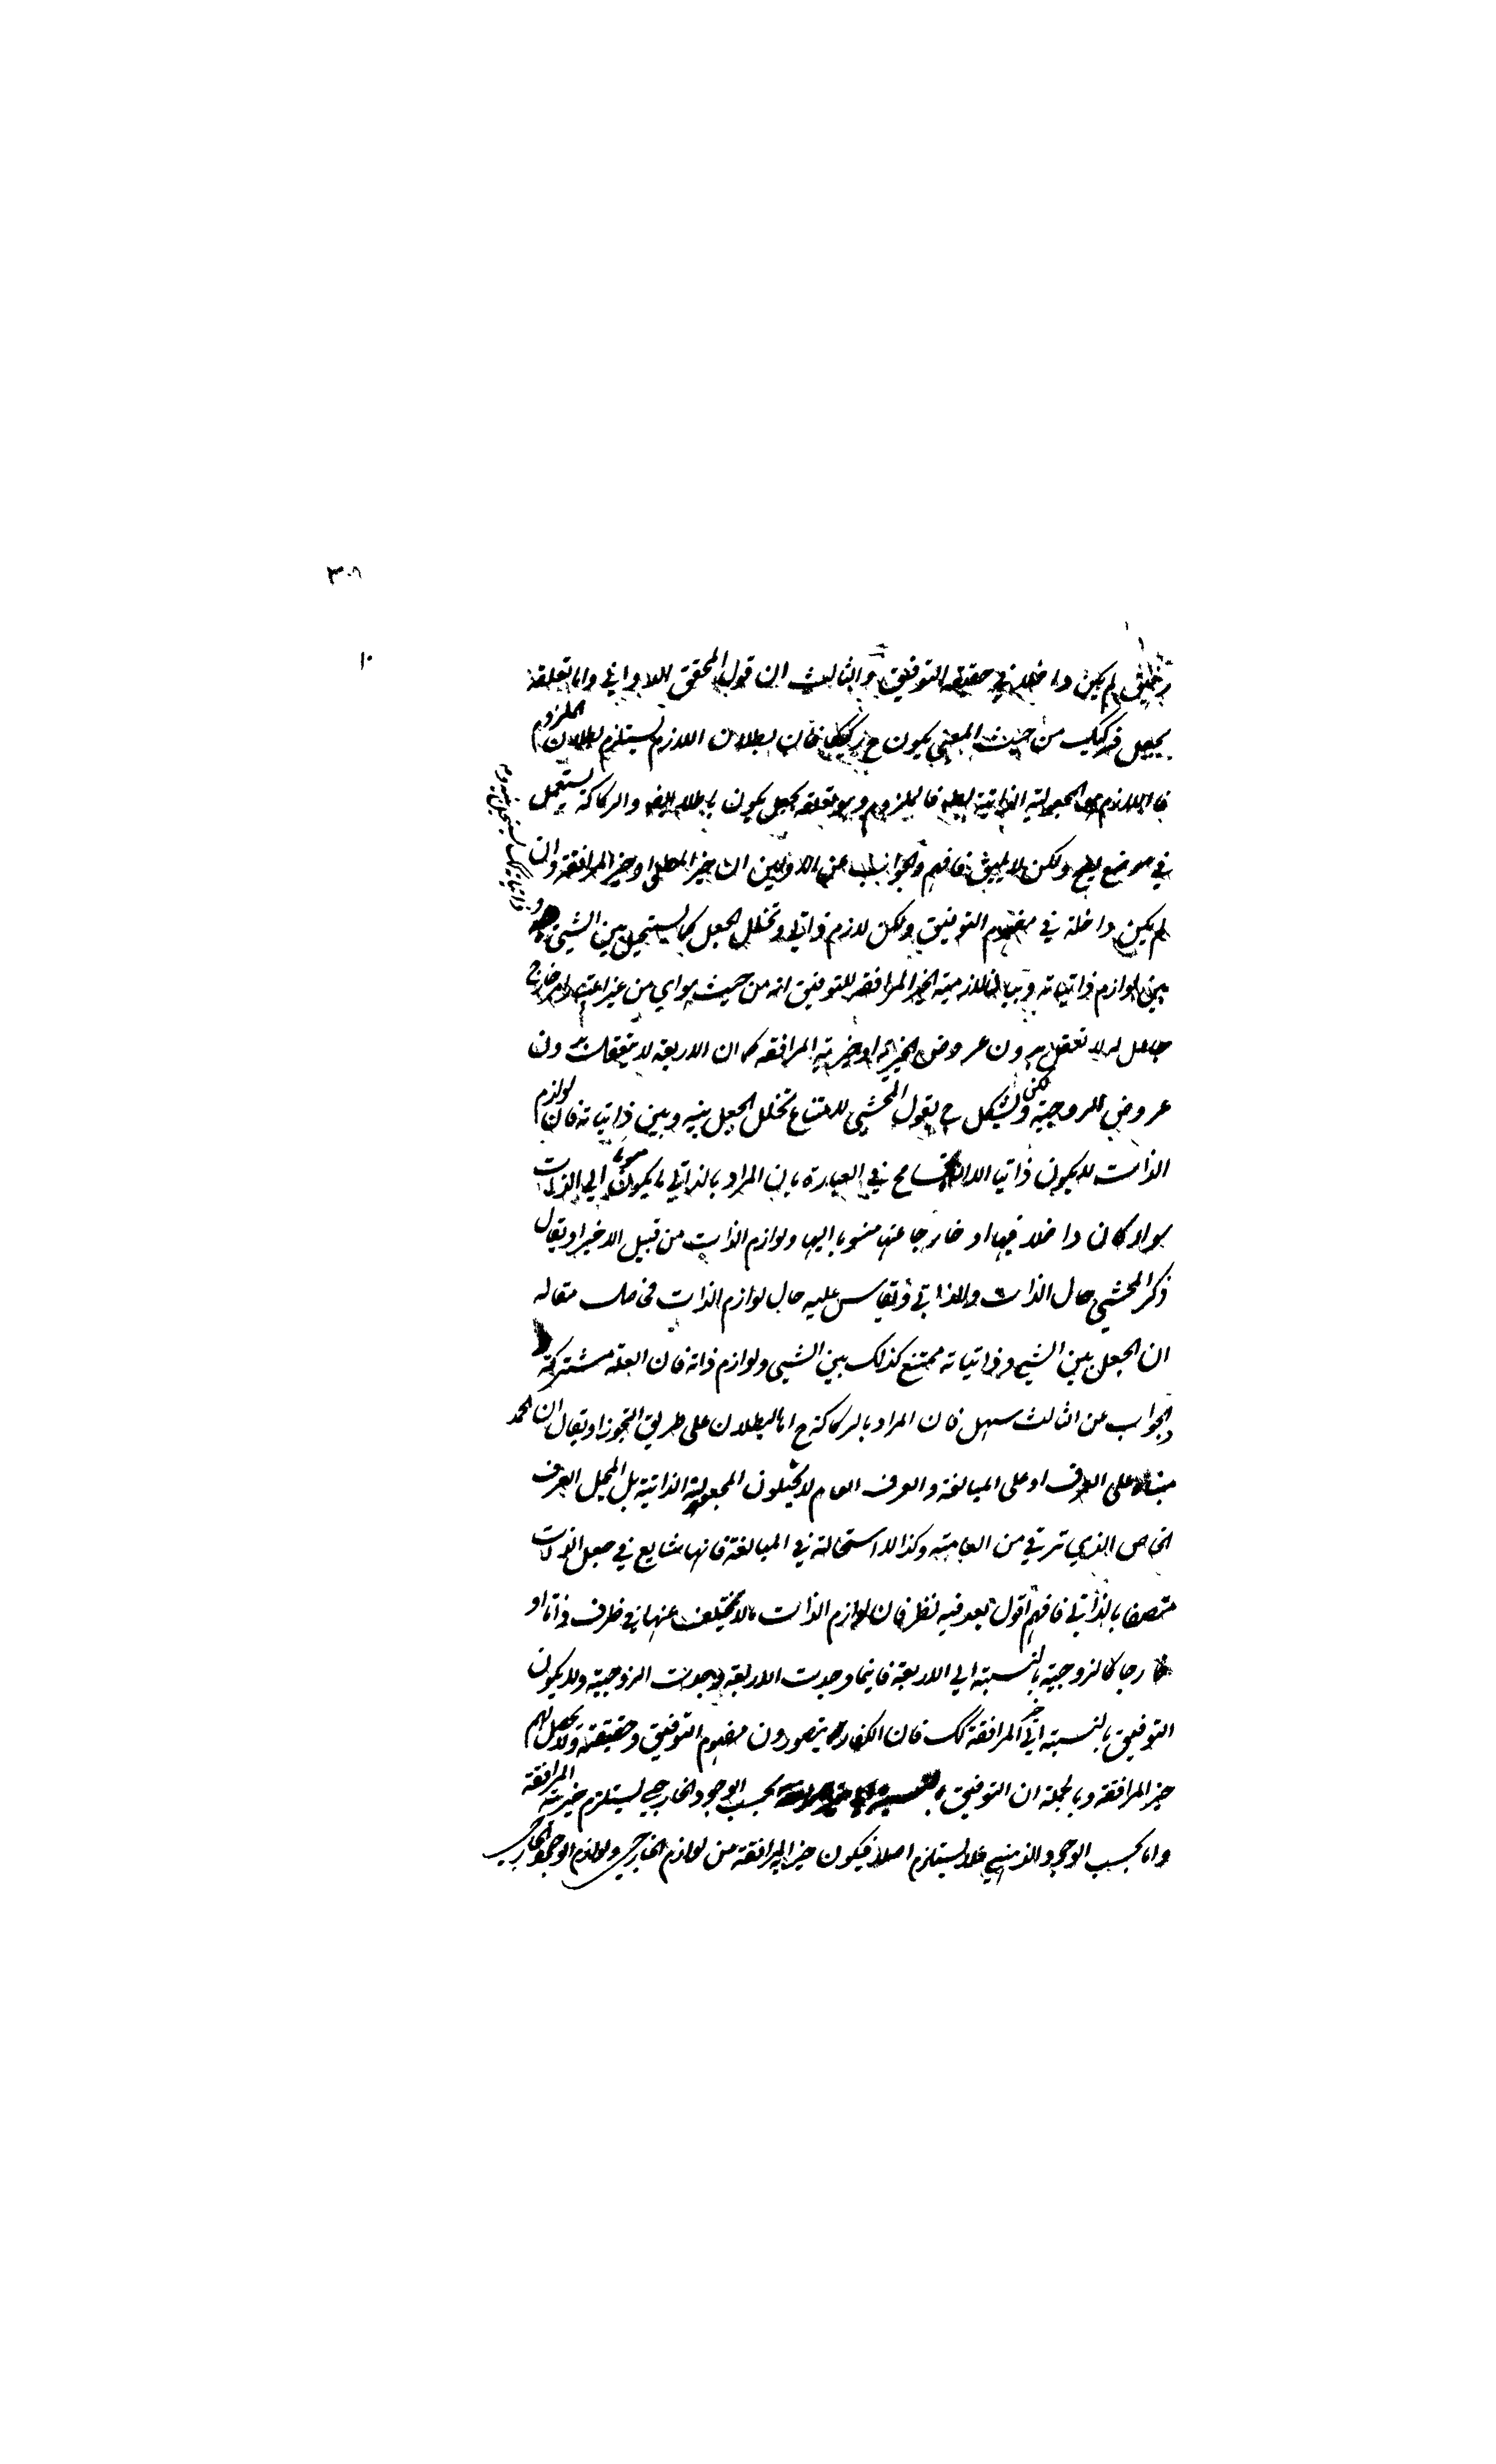 ٣٠٨
١٠
لم يكن داخلا في حقيقة التوفيق والثالث ان قول المحقق الدواني واما تعلقه
بجعل فركيك من حيث المعنى يكون ح ركيكا فان بطلان اللازم يستلزم بطلان الملزوم
فاللازم المجعولية الذاتية فالملزوم وهو تعلقه بجعل يكون باطلا ايضا والركاكة يستعمل
في موضع يصح ولكن لا يليق فافهم والجواب عن الاولين ان خير المطلق او خير المرافقة وان
لم يكن داخلة في مفهوم التوفيق ولكن لازم ذاتي وتخلل الجعل كما يستحيل بين الشيء و
ذاتياته كك يستحيل بينه و
بين لوازم ذاتياته وبيان لازمية الخير المرافقة للتوفيق انه من حيث هو اي من غير اعتبار امر خارج
لا تعقل بدون عروض الخيرية او خيرية المرافقة كما ان الاربعة لا يتعقلت بدون
عروض الزوجية ولكن يشكل ح بقول المحشي لامتناع تخلل الجعل بينه وبين ذاتياته فان لوازم
الذات لا يكون ذاتيا الا ان تسامح في العبارة بان المراد بالذاتي ما يكون منسوبا الى الذات
سواء كان داخلا فيها او خارجا عنها منسوبا اليها ولوازم الذات من قبيل الاخير او يقال
ذكر المحشي حال الذات والذاتي ويقاس عليه حال لوازم الذات فحاصل مقاله
ان الجعل بين الشيء وذاتياته ممتنع كذلك بين الشيء ولوازم ذاته فان العلة مشتركة
والجواب عن الثالث سهل فان المراد بالركاكة ح اما البطلان على طريق التجوز او يقال ان الحمد
مبناه على العرف او على المبالغة والعرف العام لا يحيلون المجعولية الذاتية بل المحيل العرف
الخاص الذي ترقي من العامية وكذا لا استحالة في المبالغة فانها شايع في جعل الذات
متصفا بالذاتي فافهم اقول بعد فيه نظر فان لوازم الذات ما لا يتخلف عنها في ظرف ذاتا او
خارجا كالزوجية بالنسبة الى الاربعة فاينما وجدت الاربعة وجدت الزوجية ولا يكون
التوفيق بالنسبة الى خير المرافقة كك فان الكفار يتصورون مفهوم التوفيق وحقيقته ولا يحصل لهم
خير المرافقة وبالجملة ان التوفيق بحسب الوجود الخارجي يستلزم خيرية المرافقة
واما بحسب الوجود الذهني فلا يستلزم اصلا فيكون خير المرافقة من لوازم الخارجي ولوازم الوجود الخارجي